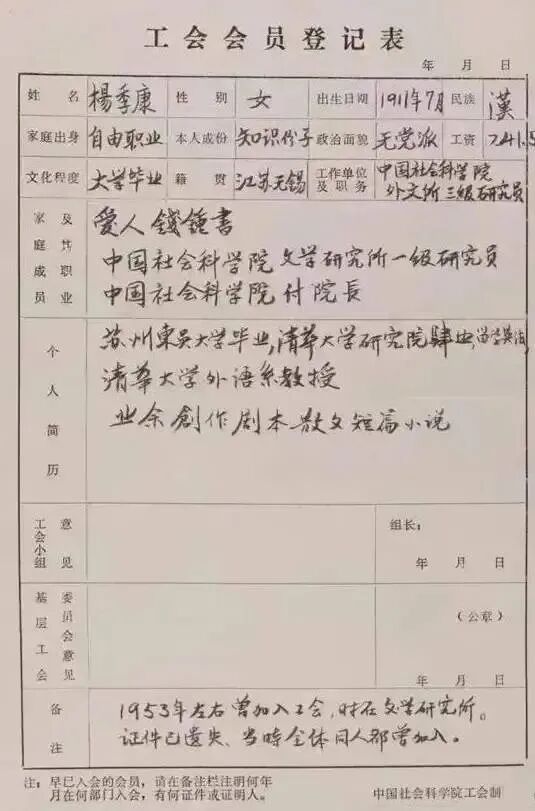 工会会员登记表
年 月 日
姓名 楊季康 性别 女 出生日期 1911年7月 民族 漢
家庭出身 自由职业 本人成份 知识份子 政治面貌 无党派 工资 241.5
文化程度 大学毕业 籍贯 江苏无锡 工作单位及职务 中国社会科学院
外文所 三级研究员
家庭成员及其职业 爱人 錢鍾書
中国社会科学院 文学研究所一级研究员
中国社会科学院 付院長
个人简历 苏州東吴大学毕业,清華大学研究院肄业,留学英法,
清華大学外语系教授
业余創作剧本散文短篇小说
工会小组意见 组长:
年 月 日
基层工会委员会意见 (公章)
年 月 日
备注 1953年左右曾加入工会,时在文学研究所。
证件已遗失、当時全体同人都曾加入。
注:早已入会的会员,请在备注栏注明何年
月在何部门入会,有何证件或证明人。
中国社会科学院工会制